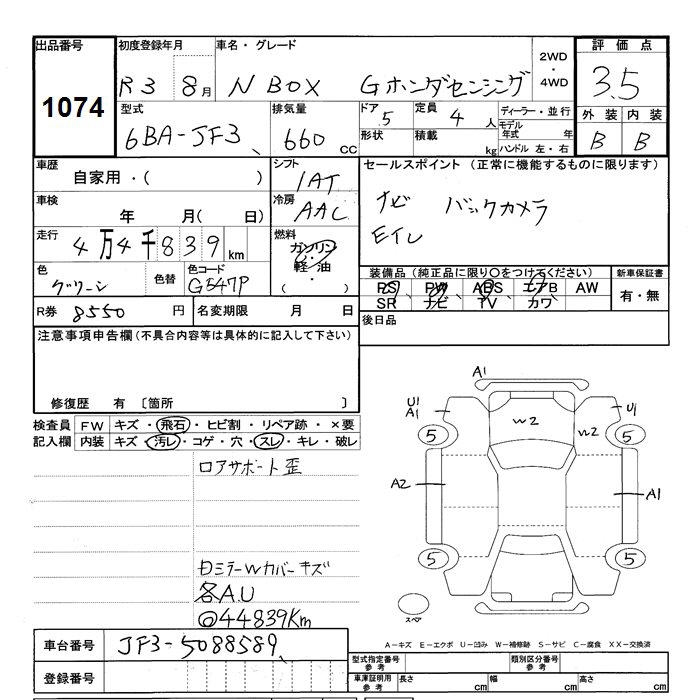 出品番号 初度登録年月 車名・グレード 2WD・4WD 評価点
1074 R3 8月 N BOX Gホンダセンシング 3.5
型式 排気量 ドア 定員 ディーラー・並行 外装 内装
6BA-JF3 660 CC 5 4人 モデル年式 年 B B
形状 積載 kg ハンドル 左・右
車歴 シフト セールスポイント (正常に機能するものに限ります)
自家用・( ) IAT
車検 冷房 ナビ バックカメラ
年 月( 日) AAC Eイレ
走行 燃料
4万4千839km ガソリン・軽油・( )
色 色替 色コード 装備品 (純正品に限り〇をつけてください) 新車保証書
グリーン G547P PS PW ABS エアB AW 有・無
SR ナビ TV カワ
R券 8550 円 名変期限 月 日 後日品
注意事項申告欄 (不具合内容等は具体的に記入して下さい)
修復歴 有 〔箇所 〕
検査員記入欄 FW キズ・飛石・ヒビ割・リペア跡・×要
内装 キズ・汚レ・コゲ・穴・スレ・キレ・破レ
ロアサポート歪
ミラーWカバーキズ
各A.U
@44839Km
A1
U1
A1
U1
W2
W2
5 5
A2 A1
5 5
スペア
A-キズ E-エクボ U-凹み W-補修跡 S-サビ C-腐食 XX-交換済
車台番号 JF3-5088589
登録番号
型式指定番号参考 類別区分番号参考
車庫証明用参考 長さ cm 幅 cm 高さ cm